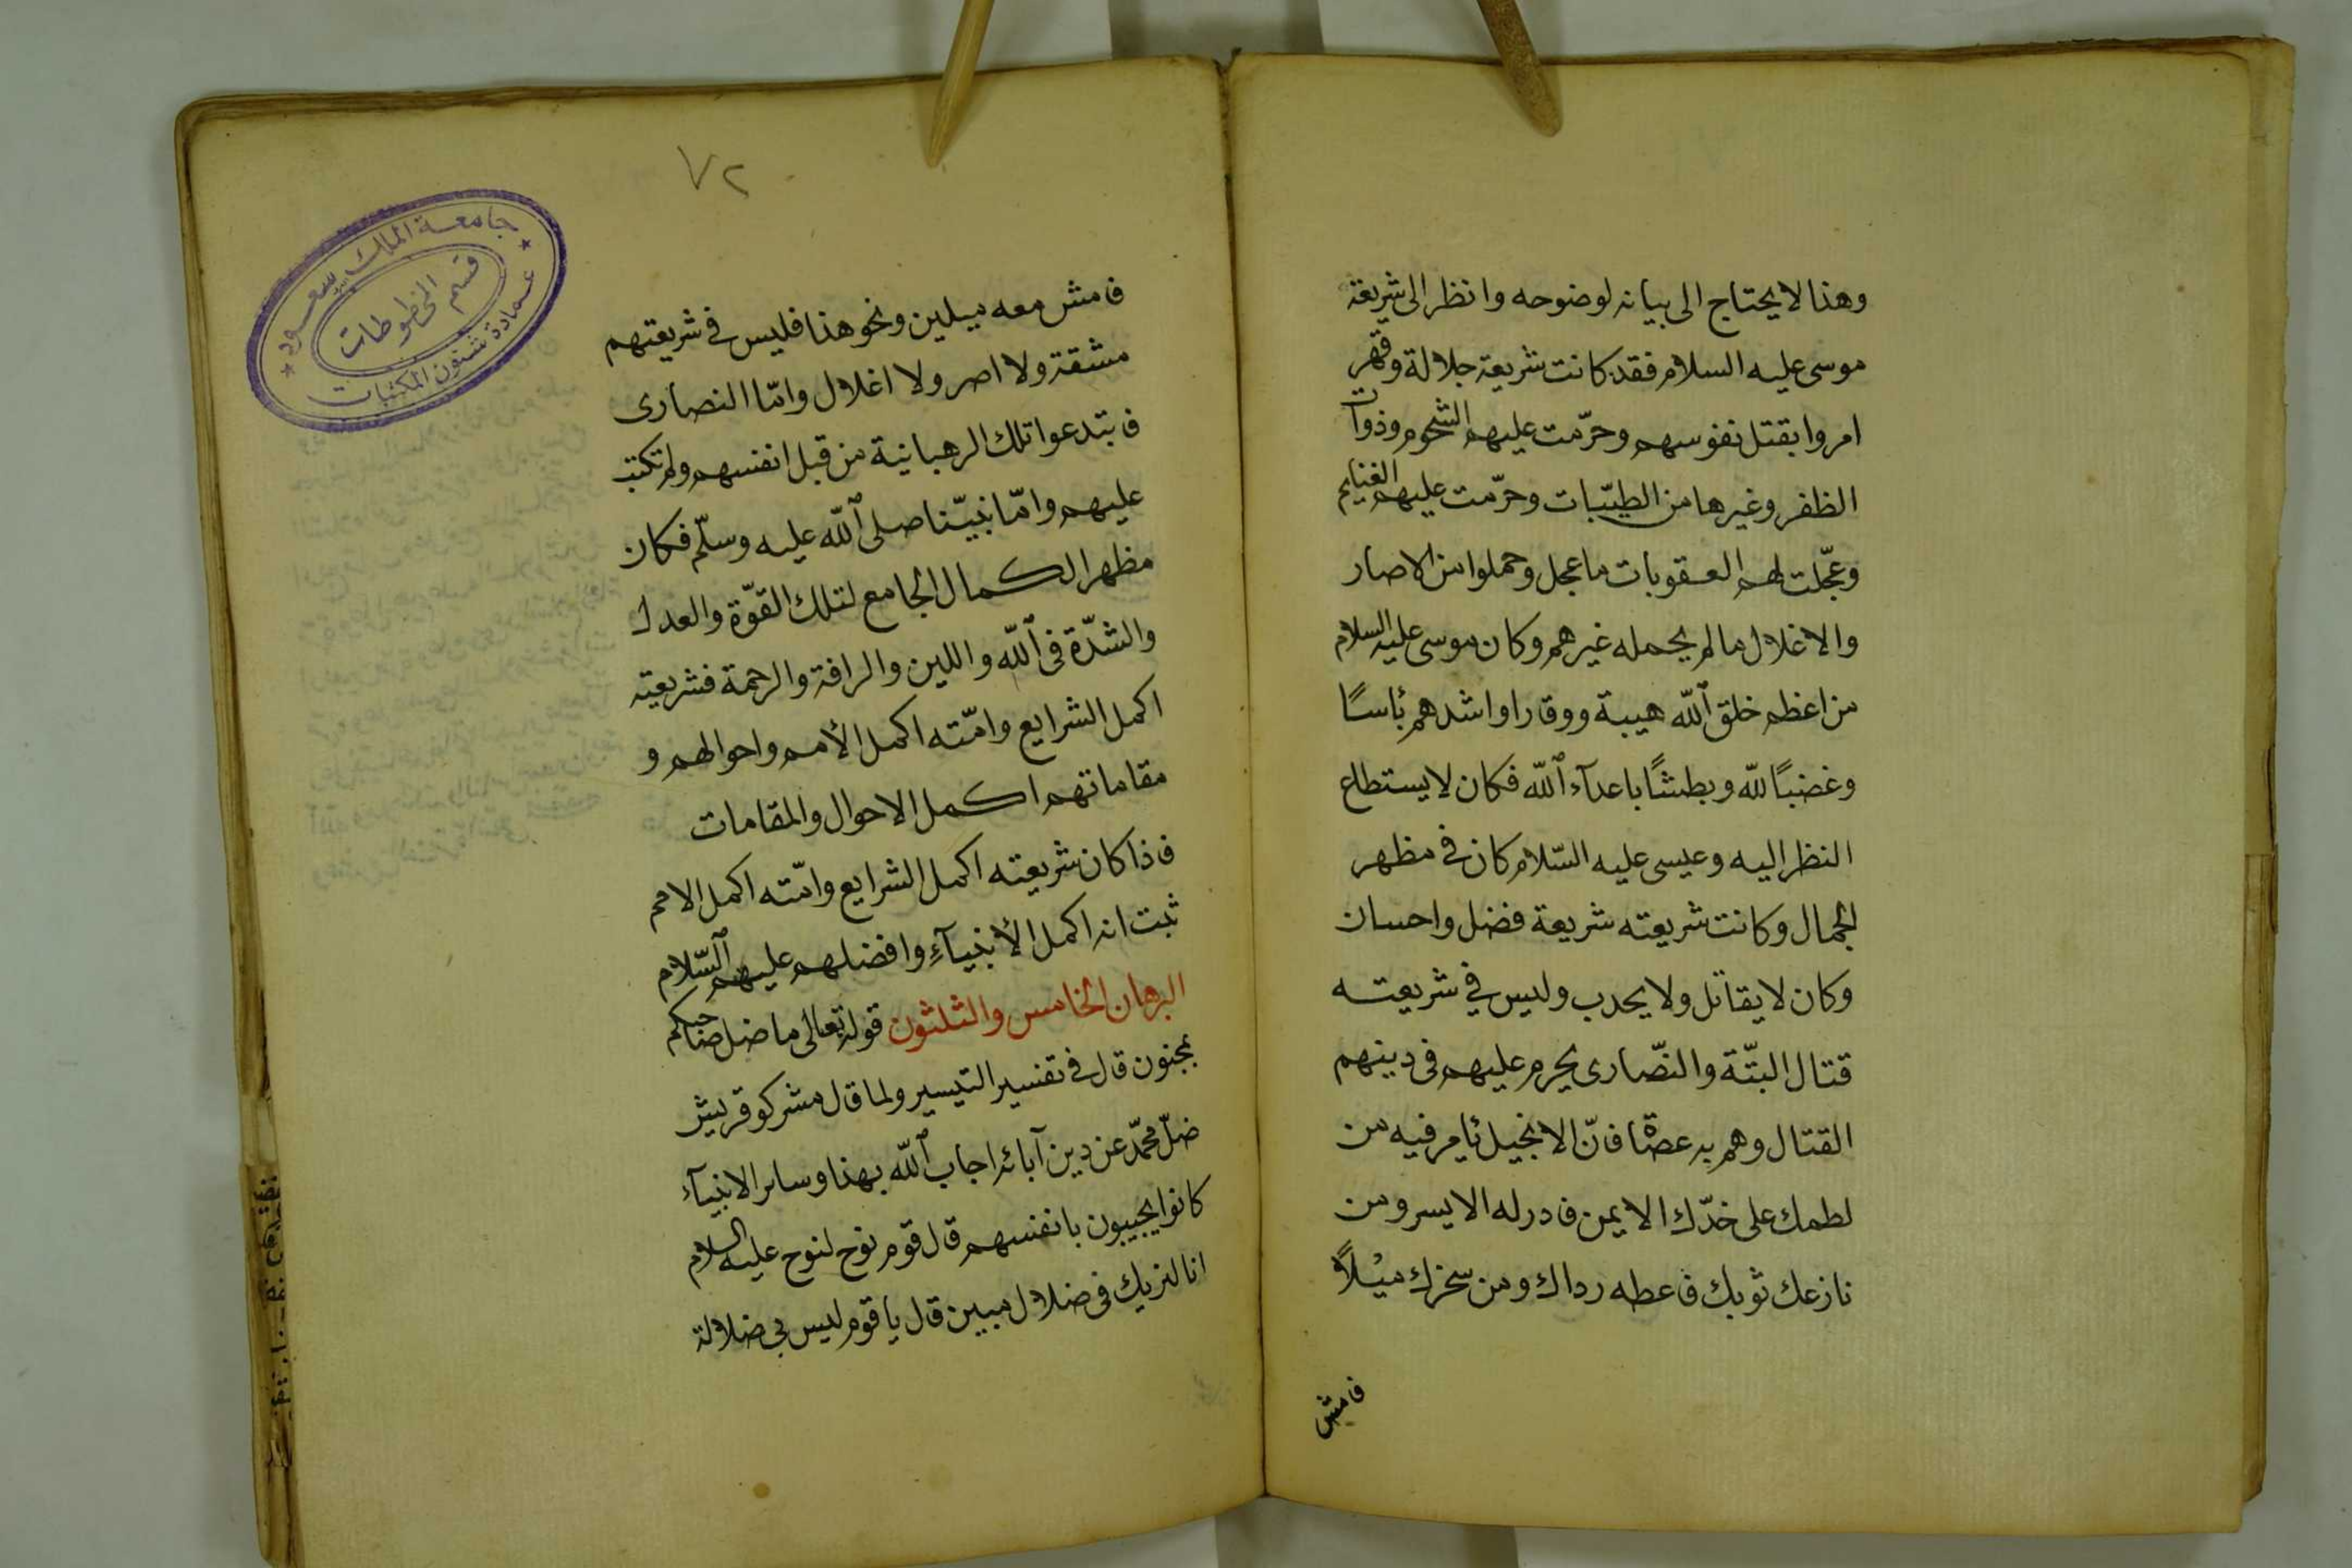 وهذا لا يحتاج الى بيانه لوضوحه وانظر الى شريعة
موسى عليه السلام فقد كانت شريعة جلالة وقهر
امروا بقتل نفوسهم وحرّمت عليهم الشحوم وذوات
الظفر وغيرها من الطيّبات وحرّمت عليهم الغنايم
وعجّلت لهم العقوبات ما عجل وحملوا من الاصار
والاغلال ما لم يحمله غيرهم وكان موسى عليه السلام
من اعظم خلق الله هيبة ووقارا واشدهم بأسًا
وغضبًا لله وبطشًا باعدآء الله فكان لا يستطاع
النظر اليه وعيسى عليه السّلام كان في مظهر
الجمال وكانت شريعته شريعة فضل واحسان
وكان لا يقاتل ولا يحدب وليس في شريعته
قتال البتّة والنّصارى يحرم عليهم في دينهم
القتال وهم به عصاة فانّ الانجيل يأمر فيه من
لطمك على خدّك الايمن فادر له الايسر ومن
نازعك ثوبك فاعطه رداك ومن سخرك ميلًا
فامش
٧٢
جامعة الملك سعود
قسم المخطوطات
عمادة شئون المكتبات
فامش معه ميلين ونحو هذا فليس في شريعتهم
مشقة ولا اصر ولا اغلال وانّما النصارى
فابتدعوا تلك الرهبانية من قبل انفسهم ولم تكتب
عليهم وامّا نبيّنا صلى الله عليه وسلّم فكان
مظهر الكمال الجامع لتلك القوّة والعدل
والشدّة في الله واللين والرافة والرحمة فشريعته
اكمل الشرايع وامّته اكمل الأمم واحوالهم و
مقاماتهم اكمل الاحوال والمقامات
فاذا كان شريعته اكمل الشرايع وامّته اكمل الامم
ثبت انه اكمل الأنبيآءِ وافضلهم عليهم السّلام
البرهان الخامس والثلثون قوله تعالى ما ضل صاحبكم
بمجنون قال في تفسير التيسير ولما قال مشركو قريش
ضلّ محمّد عن دين آبائه اجاب الله بهذا وسائر الانبيآء
كانوا يجيبون بانفسهم قال قوم نوح لنوح عليه السلام
انا لنريك في ضلال مبين قال يا قوم ليس بي ضلالة